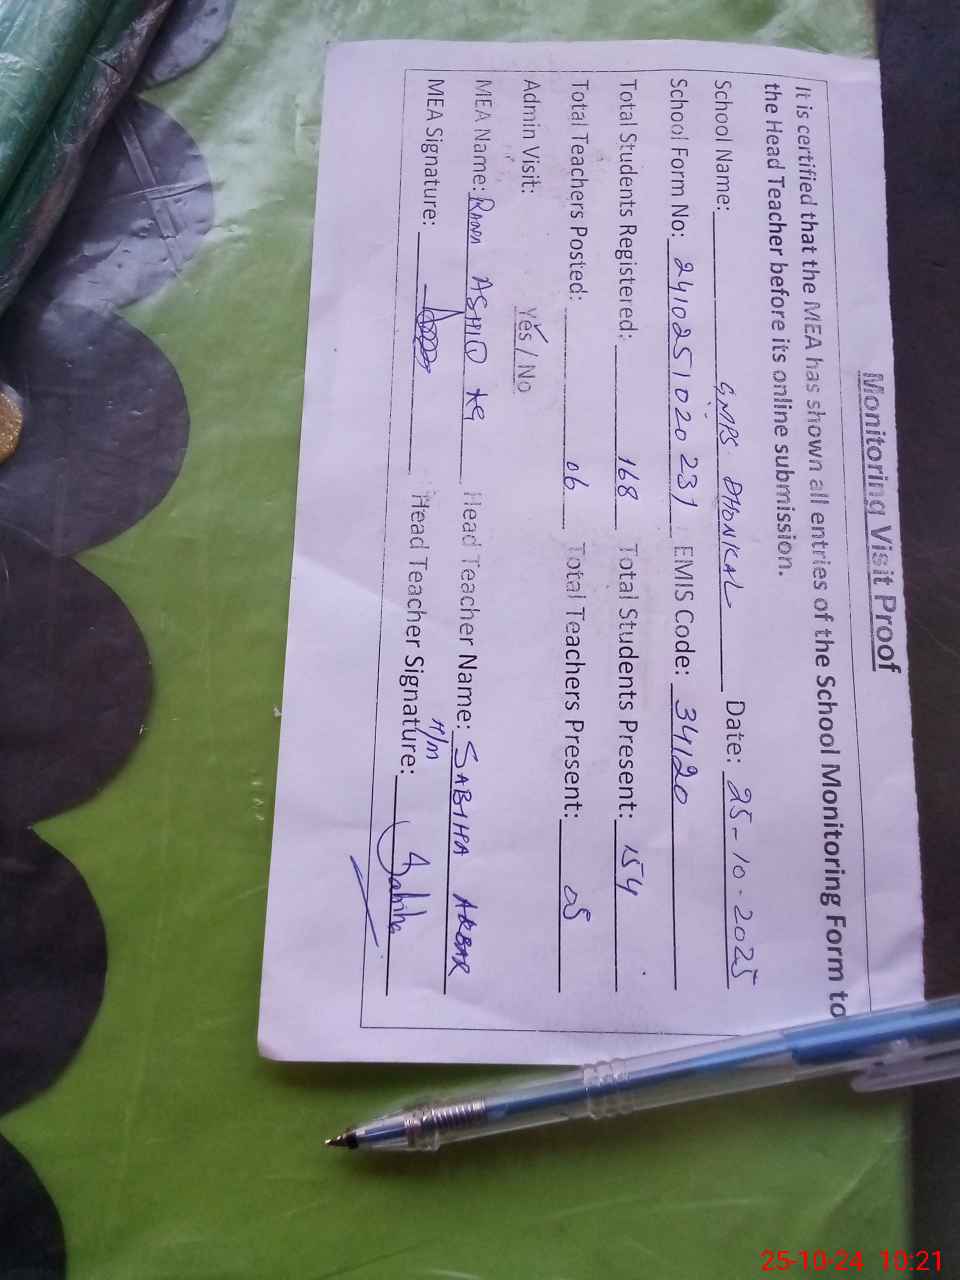 Monitoring Visit Proof
It is certified that the MEA has shown all entries of the School Monitoring Form to
the Head Teacher before its online submission.
School Name: GMPS DHONKAL Date: 25-10-2025
School Form No: 2410251020231 EMIS Code: 34120
Total Students Registered: 168 Total Students Present: 154
Total Teachers Posted: 06 Total Teachers Present: 05
Admin Visit: Yes / No
MEA Name: RANA ASHIQ Head Teacher Name: SABIHA AKBAR
H/M
MEA Signature: Head Teacher Signature: Sabiha
25-10-24 10:21